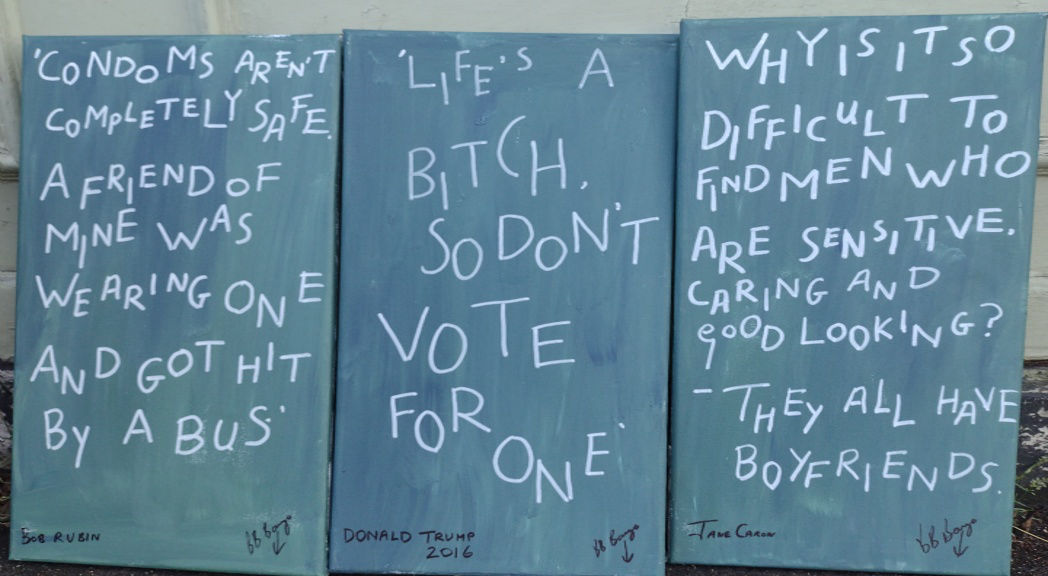 'CONDOMS AREN'T
COMPLETELY SAFE.
A FRIEND OF
MINE WAS
WEARING ONE
AND GOT HIT
BY A BUS'
BOB RUBIN
'LIFE'S A
BITCH.
SO DON'T
VOTE
FOR
ONE'
DONALD TRUMP
2016
WHY IS IT SO
DIFFICULT TO
FIND MEN WHO
ARE SENSITIVE.
CARING AND
gOOD LOOKING?
- THEY ALL HAVE
BOYFRIENDS.
JANE CARON